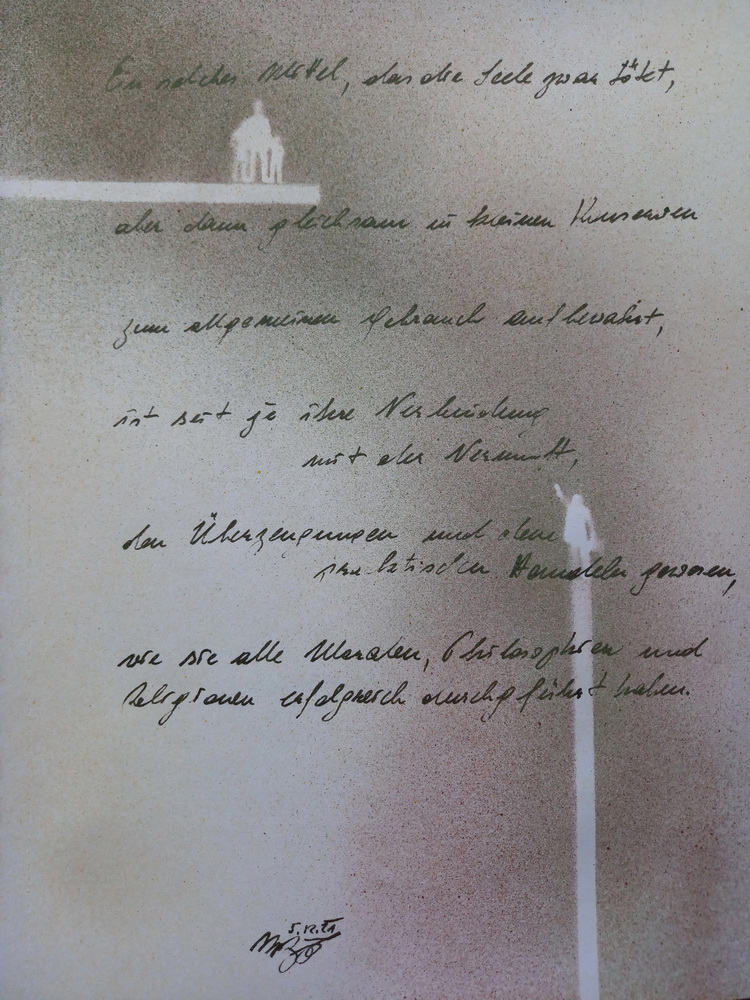 Ein solches Mittel, das die Seele zwar tötet,
aber dann gleichsam in kleinen Konserven
zum allgemeinen Gebrauch aufbewahrt,
ist seit je ihre Verbindung
mit der Vernunft,
den Überzeugungen und dem
praktischen Handeln gewesen,
wie sie alle Moralen, Philosophien und
Religionen erfolgreich durchgeführt haben.